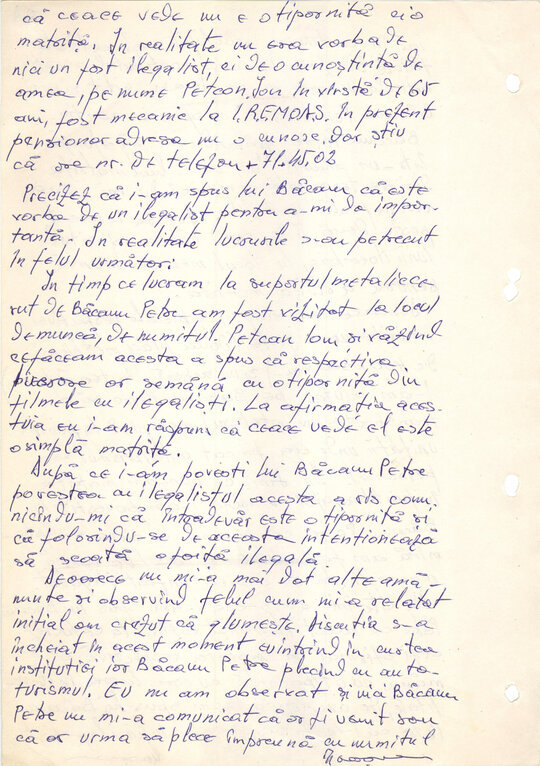 că ceace vede nu e o tiporniță ci o
matriță. În realitate nu era vorba de
nici un fost ilegalist, ci de o cunoștință de
amea, pe nume Petcan Ion în vîrstă de 65
ani, fost mecanic la I.R.E.M.O.A.S. În prezent
pensionar adresa nu o cunosc, dar știu
că are nr. de telefon 71.45.02
Precizez că i-am spus lui Băcanu că este
vorba de un ilegalist pentru a-mi da impor-
tanță. În realitate lucrurile s-au petrecut
în felul următor:
În timp ce lucram la suportul metalic ce
rut de Băcanu Petre am fost vizitat la locul
de muncă, de numitul Petcan Ion și văzînd
ce făceam acesta a spus că respectiva
piesă ar semăna cu o tiporniță din
filmele cu ilegaliști. La afirmația aces-
tuia eu i-am răspuns că ceace vede el este
o simplă matriță.
După ce i-am povesti lui Băcanu Petre
povestea cu ilegalistul acesta a rîs comu-
nicîndu-mi că întradevăr este o tiporniță și
că folosindu-se de aceasta intenționează
să scoată o foiță ilegală.
Deoarece nu mi-a mai dat alte amă-
nunte și observînd felul cum mi-a relatat
inițial am crezut că glumește. Discuția s-a
încheiat în acest moment eu intrînd în curtea
instituției iar Băcanu Petre plecînd cu auto-
turismul. Eu nu am observat și nici Băcanu
Petre nu mi-a comunicat că ar fi venit sau
că ar urma să plece împreună cu numitul